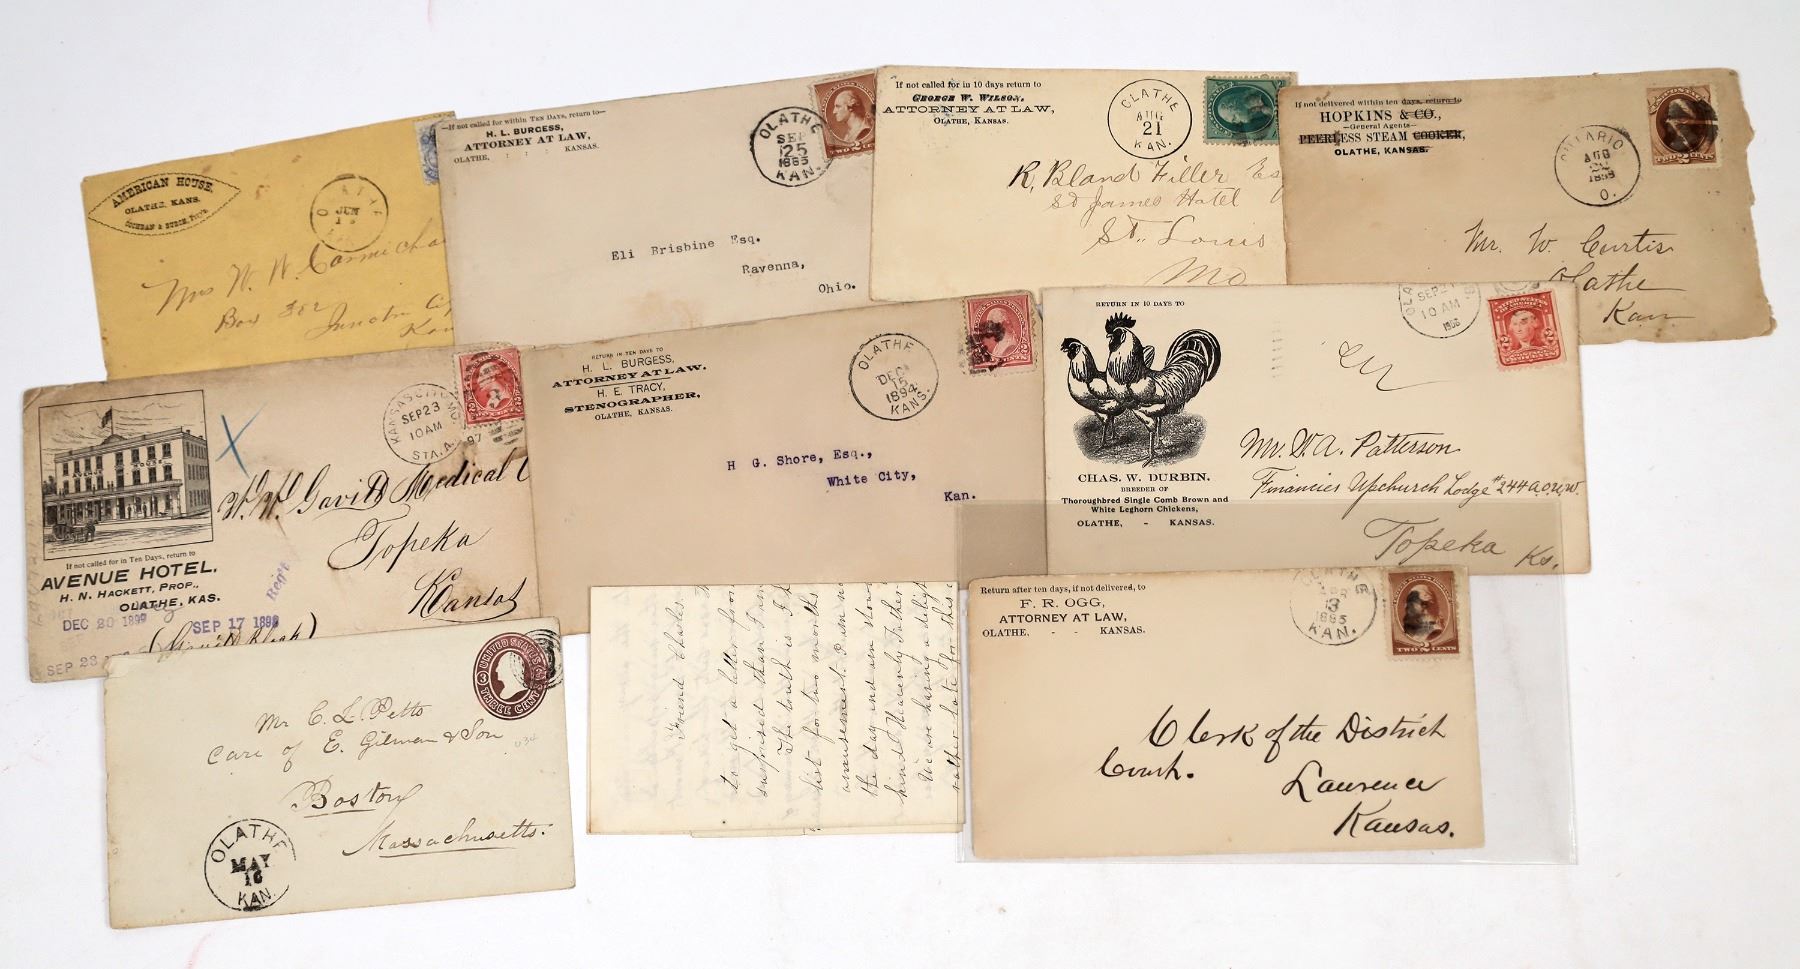 AMERICAN HOUSE,
OLATHE, KANS.
JUN
Mrs W. W. Carmicha
Box 302
Junction City
Kan
—If not called for within TEN DAYS, return to—
H. L. BURGESS,
ATTORNEY AT LAW,
OLATHE, : : : KANSAS.
OLATHE
SEP
25
1885
KAN.
TWO 2 CENTS
Eli Brisbine Esq.
Ravenna,
Ohio.
If not called for in 10 days return to
GEORGE W. WILSON,
ATTORNEY AT LAW,
OLATHE, KANSAS.
OLATHE
AUG
21
KAN.
R. Bland Filler Es
St James Hotel
St. Louis
Mo
If not delivered within ten days, return to
HOPKINS & CO.,
—General Agents—
PEERLESS STEAM COOKER,
OLATHE, KANSAS.
ONTARIO
AUG
O.
TWO 2 CENTS
Mr. W. Curtis
Olathe
Kan
If not called for in Ten Days, return to
AVENUE HOTEL,
H. N. HACKETT, PROP.,
OLATHE, KAS.
DEC 20 1899
SEP 17 1899
SEP 23
KANSAS CITY, MO.
SEP 23
10 AM
STA. A.
97
X
W. W. Gavitt Medical C
Topeka
Kansas
RETURN IN TEN DAYS TO
H. L. BURGESS,
ATTORNEY AT LAW.
H. E. TRACY,
STENOGRAPHER,
OLATHE, KANSAS.
OLATHE
DEC
15
1894
KANS.
H G. Shore, Esq.,
White City,
Kan.
RETURN IN 10 DAYS TO
CHAS. W. DURBIN.
BREEDER OF
Thoroughbred Single Comb Brown and
White Leghorn Chickens,
OLATHE, - KANSAS.
OLA
SEP 21
10 AM
1906
Mr. W. A. Patterson
Financier Upchurch Lodge #244 A.O.U.W.
Topeka Ks.
UNITED STATES
3
THREE CENTS
Mr C. L. Petts
Care of E. Gilman & Son
U34
Boston
Massachusetts.
OLATHE
MAY
16
KAN.
Friend Charles
to get a letter from
surprised than I
The truth is I
list for two months
amusement. I am no
the day and am thou
kind Heavenly Father
We are having a deligh
rather late for this
Return after ten days, if not delivered, to
F. R. OGG,
ATTORNEY AT LAW,
OLATHE, - - KANSAS.
OLATHE
APR
3
1885
KAN.
TWO 2 CENTS
Clerk of the District
Court.
Lawrence
Kansas.